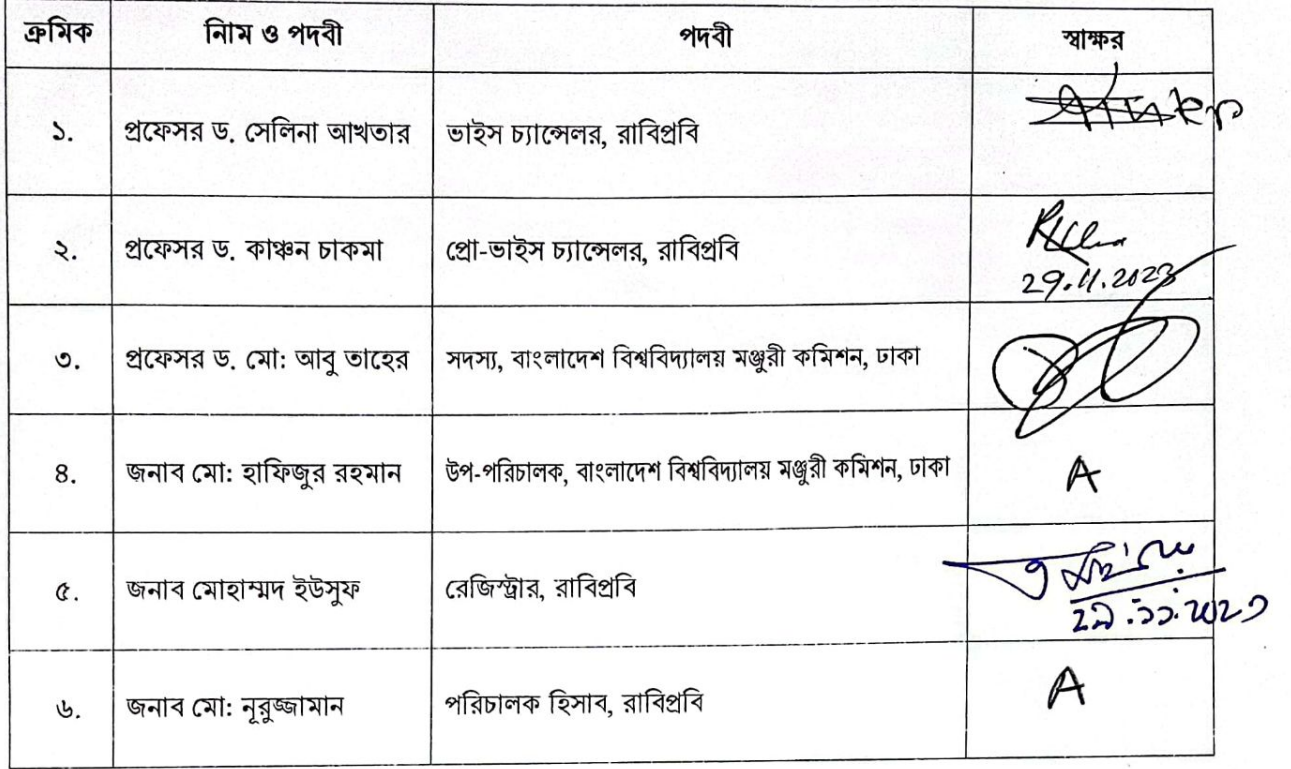 ক্রমিক নািম ও পদবী পদবী স্বাক্ষর
১. প্রফেসর ড. সেলিনা আখতার ভাইস চ্যান্সেলর, রাবিপ্রবি
২. প্রফেসর ড. কাঞ্চন চাকমা প্রো-ভাইস চ্যান্সেলর, রাবিপ্রবি
29.11.2023
৩. প্রফেসর ড. মো: আবু তাহের সদস্য, বাংলাদেশ বিশ্ববিদ্যালয় মঞ্জুরী কমিশন, ঢাকা
৪. জনাব মো: হাফিজুর রহমান উপ-পরিচালক, বাংলাদেশ বিশ্ববিদ্যালয় মঞ্জুরী কমিশন, ঢাকা A
৫. জনাব মোহাম্মদ ইউসুফ রেজিস্ট্রার, রাবিপ্রবি
২৯.১১.২০২৩
৬. জনাব মো: নূরুজ্জামান পরিচালক হিসাব, রাবিপ্রবি A